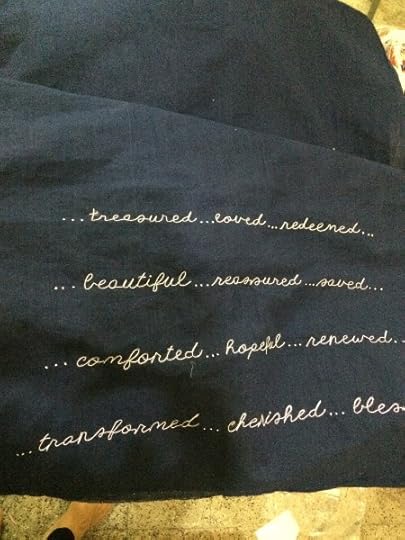 ...treasured...loved...redeemed...
...beautiful...reassured...saved...
...comforted...hopeful...renewed...
...transformed...cherished...bles